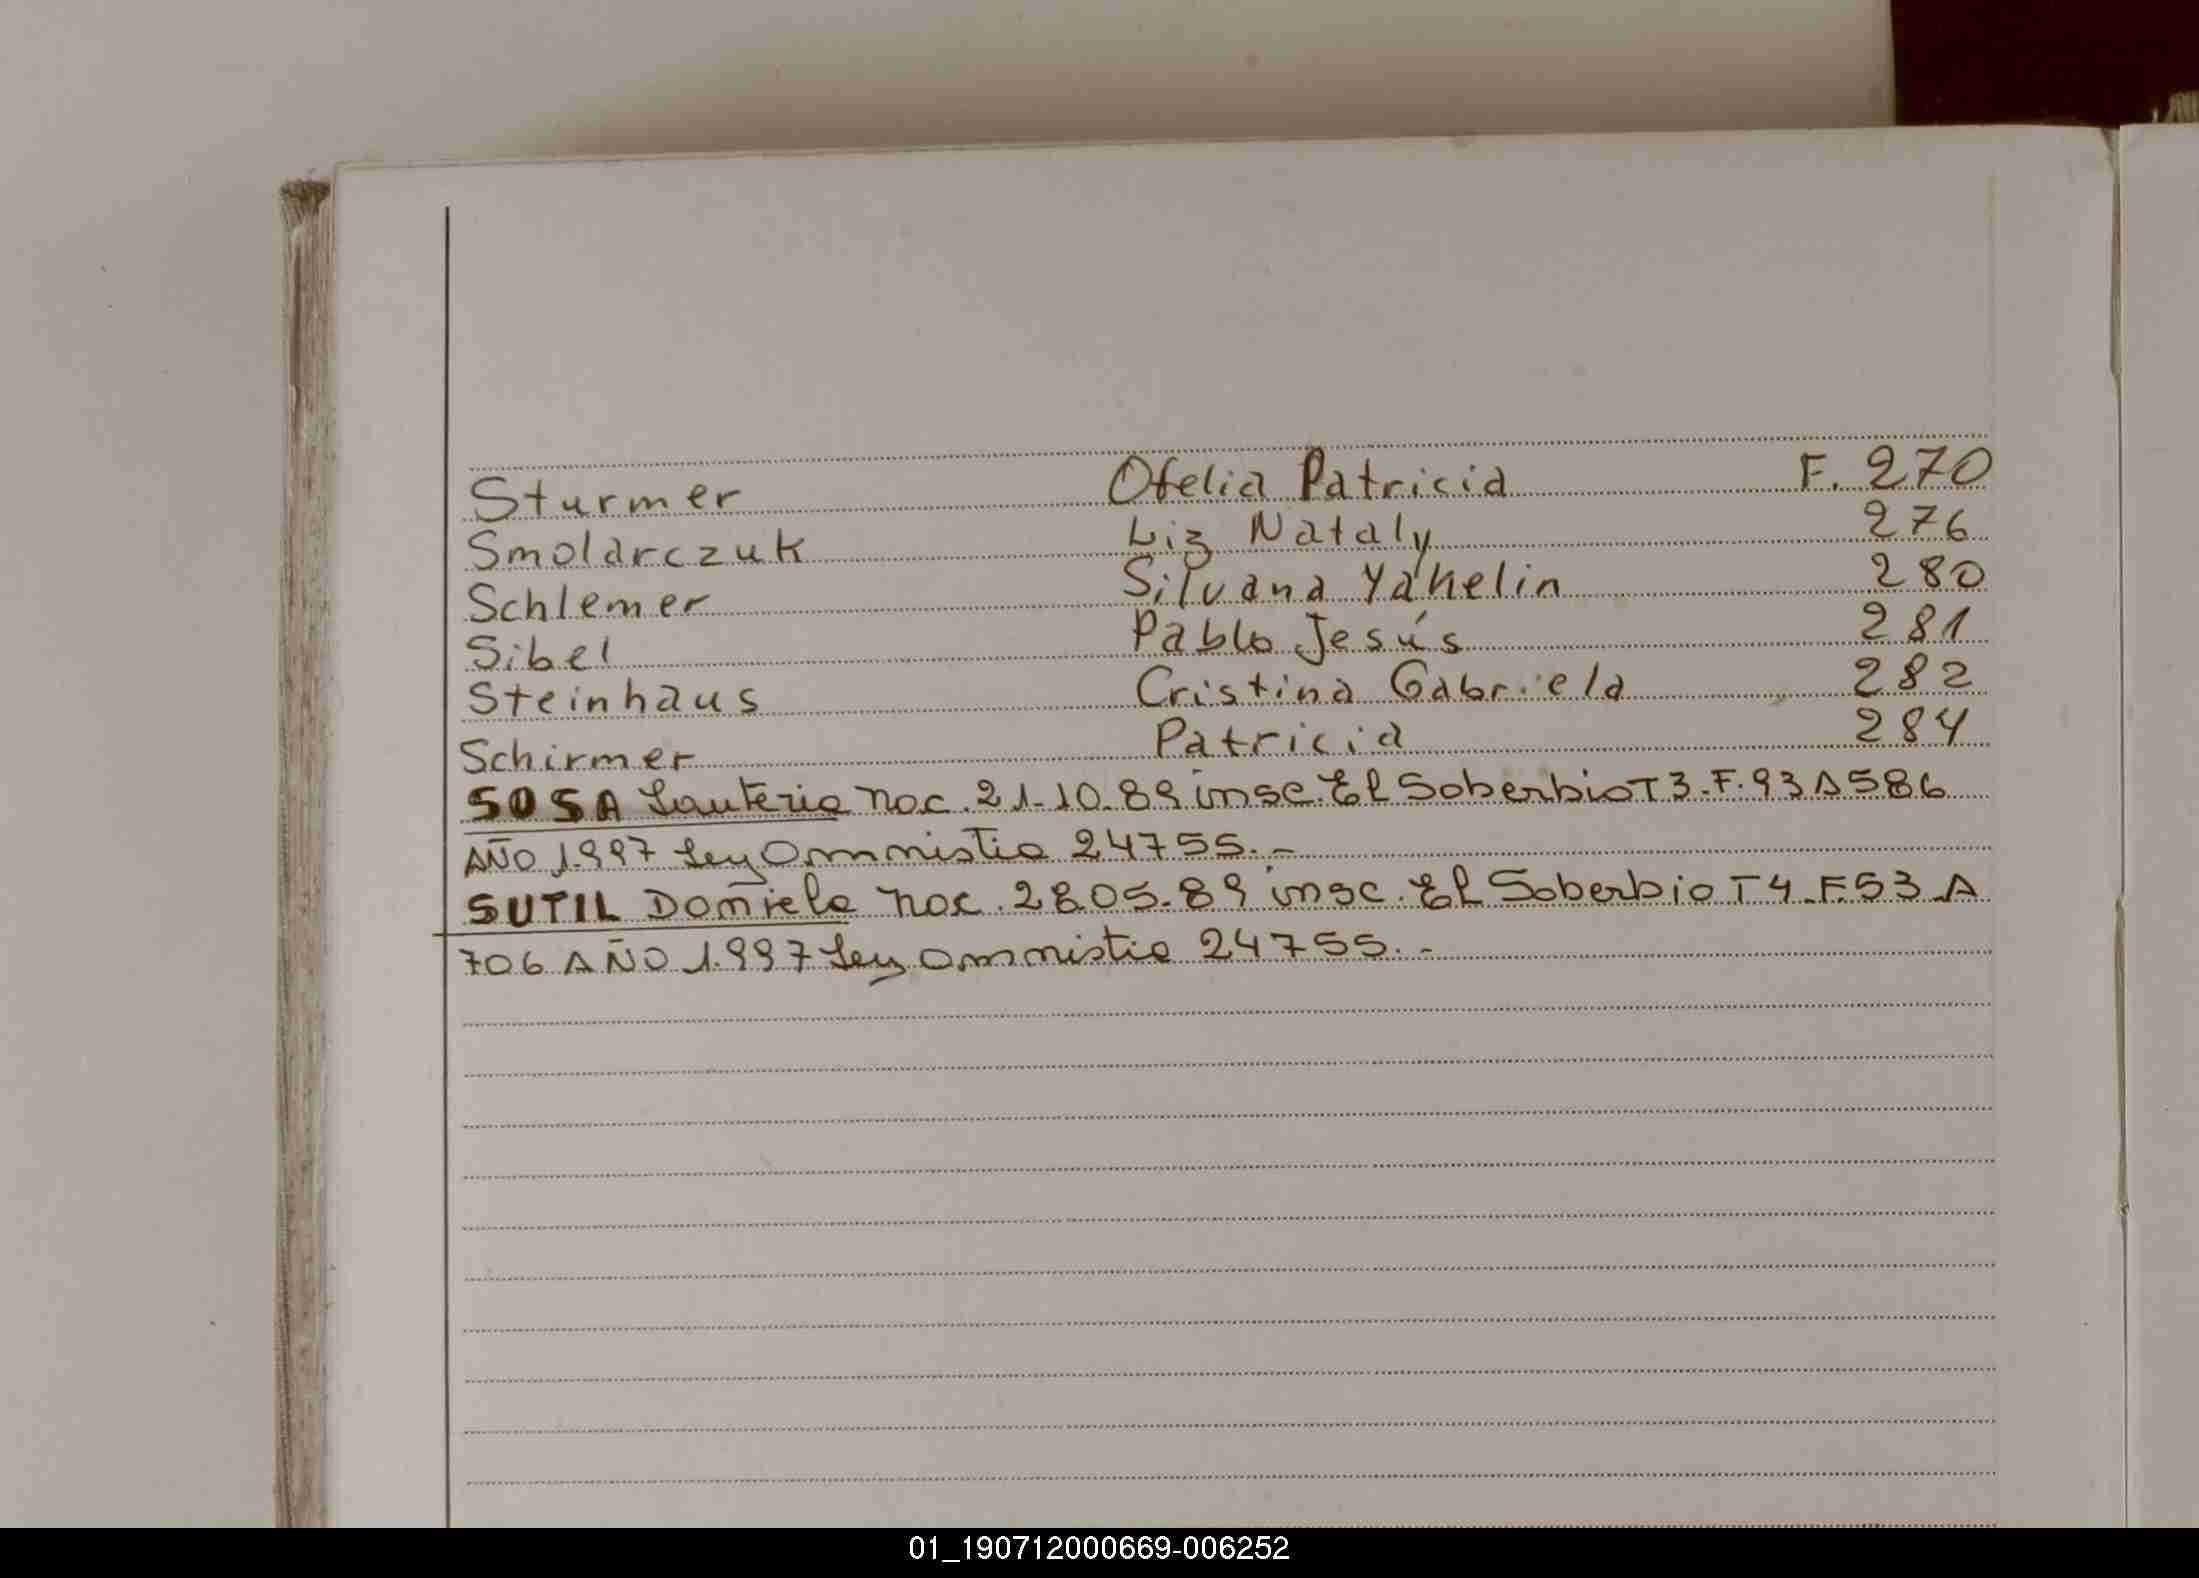 Sturmer Ofelia Patricia F. 270
Smolarczuk Liz Nataly 276
Schlemer Silvana Yahelin 280
Sibel Pablo Jesús 281
Steinhaus Cristina Gabriela 282
Schirmer Patricia 284
SOSA Lauteria nac. 21-10-89 insc. El Soberbio T3.F.93 A586
AÑO 1.997 Ley amnistia 24755.-
SUTIL Daniela nac. 2805-89 insc. El Soberbio T4.F.53.A
706 AÑO 1.997 Ley amnistia 24755.-
01_190712000669-006252